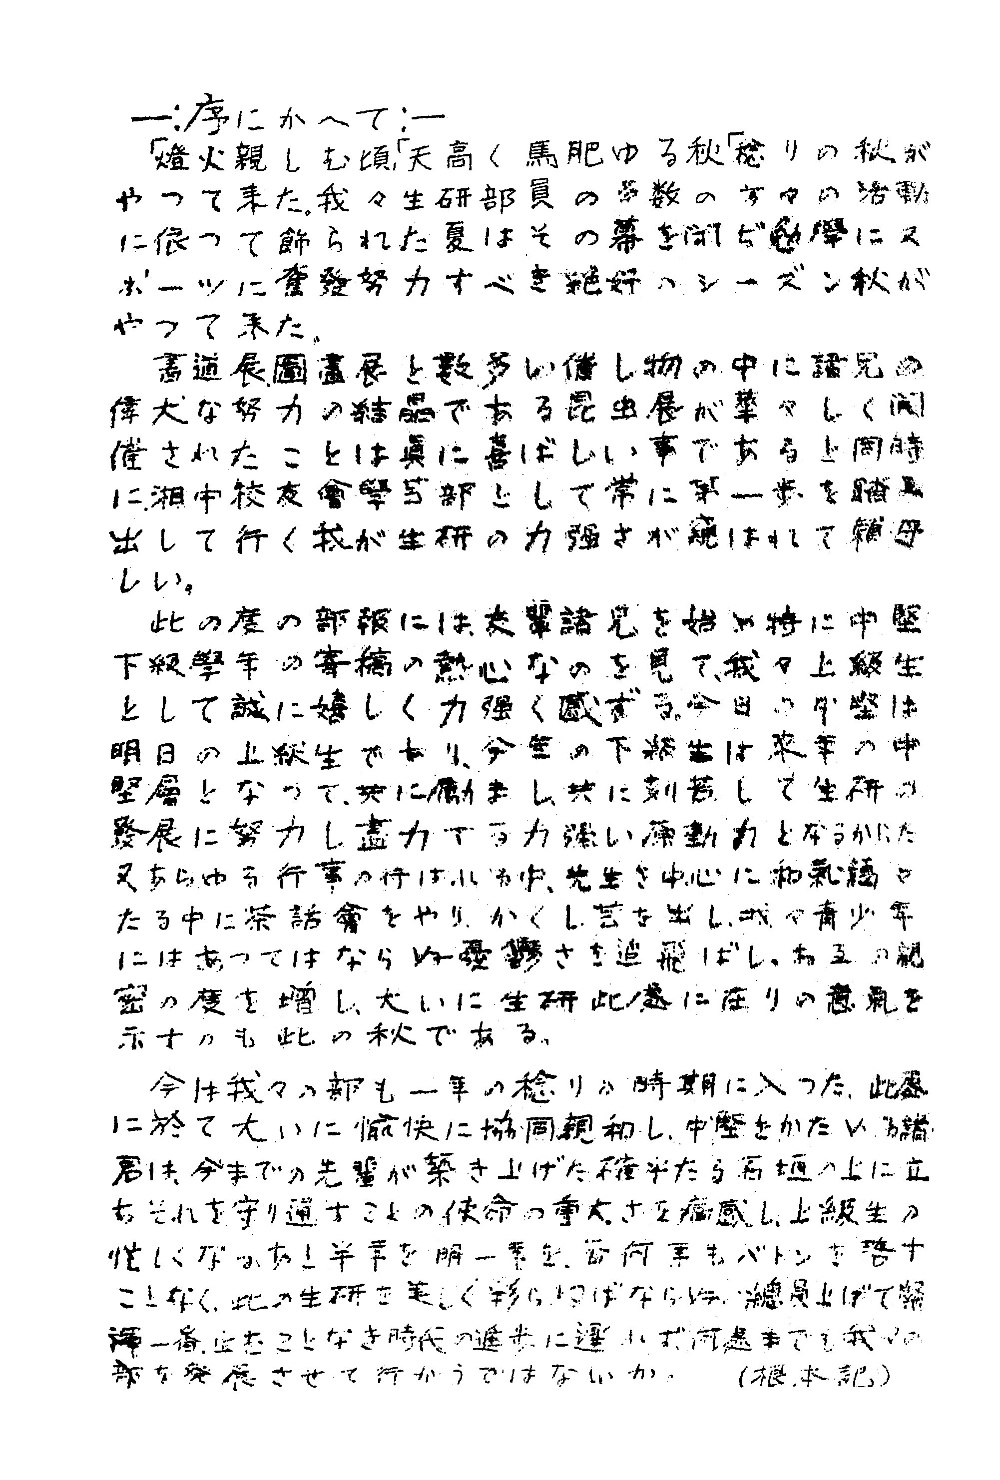 ―:序にかへて:―
「燈火親しむ頃」「天高く馬肥ゆる秋」「稔りの秋が
やつて来た。我々生研部員の多数の方々の活動
に依つて飾られた夏はその幕を閉ぢ勉學にス
ポーツに奮發努力すべき絶好のシーズン秋が
やつて来た。
書道展、圖畫展と數多い催し物の中に諸兄の
偉大な努力の結晶である昆虫展が華々しく開
催されたことは眞に喜ばしい事であると同時
に湘中校友會學藝部として常に第一歩を踏み
出して行く我が生研の力强さが窺はれて頼母
しい。
此の度の部報には、友輩諸兄を始め特に中堅
下級學年の寄稿の熱心なのを見て、我々上級生
として誠に嬉しく力强く感ずる。今日の中堅は
明日の上級生であり、今年の下級生は來年の中
堅層となつて、共に励まし、共に刻苦して生研の
發展に努力し盡力する力强い原動力となるからだ
又あらゆる行事の行はれる中、先生を中心に和氣靄々
たる中に茶話會をやり、かくし芸を出し、我々青少年
にはあつてはならぬ憂鬱さを追飛ばし、お互の親
密の度を増し、大いに生研此處に在りの意氣を
示すのも此の秋である。
今は我々の部も一年の稔りの時期に入つた、此處
に於て大いに愉快に協同親和し、中堅をかためる諸
君は、今までの先輩が築き上げた確乎たる石垣の上に立
ちそれを守り通すことの使命の重大さを痛感し、上級生の
忙しくなるあと半年を、明一年を、 何事もバトンを落す
ことなく、此の生研を美しく彩らねばならぬ。總員上げて緊
褌一番、止むことなき時代の進歩に遅れず何處までも我々の
部を発展させて行かうではないか。 (根本記)